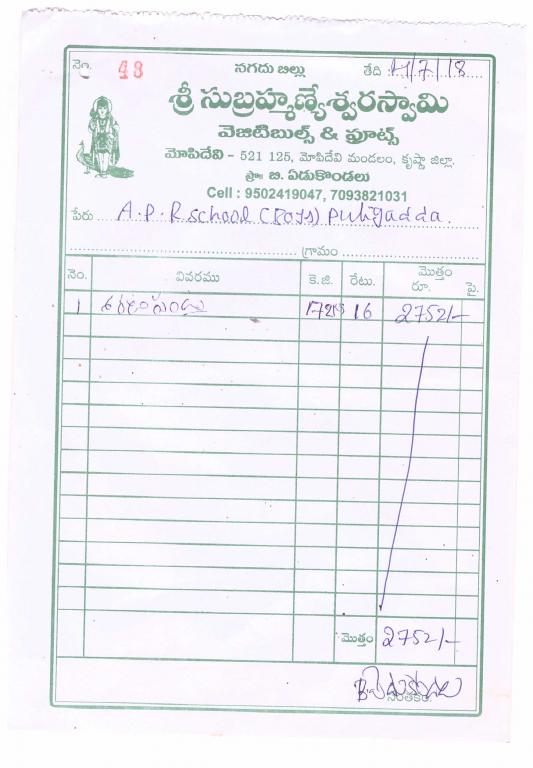 నెం. 43 నగదు బిల్లు తేది : 11/7/18
శ్రీ సుబ్రహ్మణ్యేశ్వరస్వామి
వెజిటిబుల్స్ & ఫ్రూట్స్
మోపిదేవి - 521 125, మోపిదేవి మండలం, కృష్ణా జిల్లా.
ప్రొ॥ బి. ఏడుకొండలు
Cell : 9502419047, 7093821031
పేరు A.P.R School (Boys) Puligadda.
గ్రామం
నెం. వివరము కె.జి. రేటు. మొత్తం రూ. పై.
1 172 16 2752/-
మొత్తం 2752/-
సంతకం.